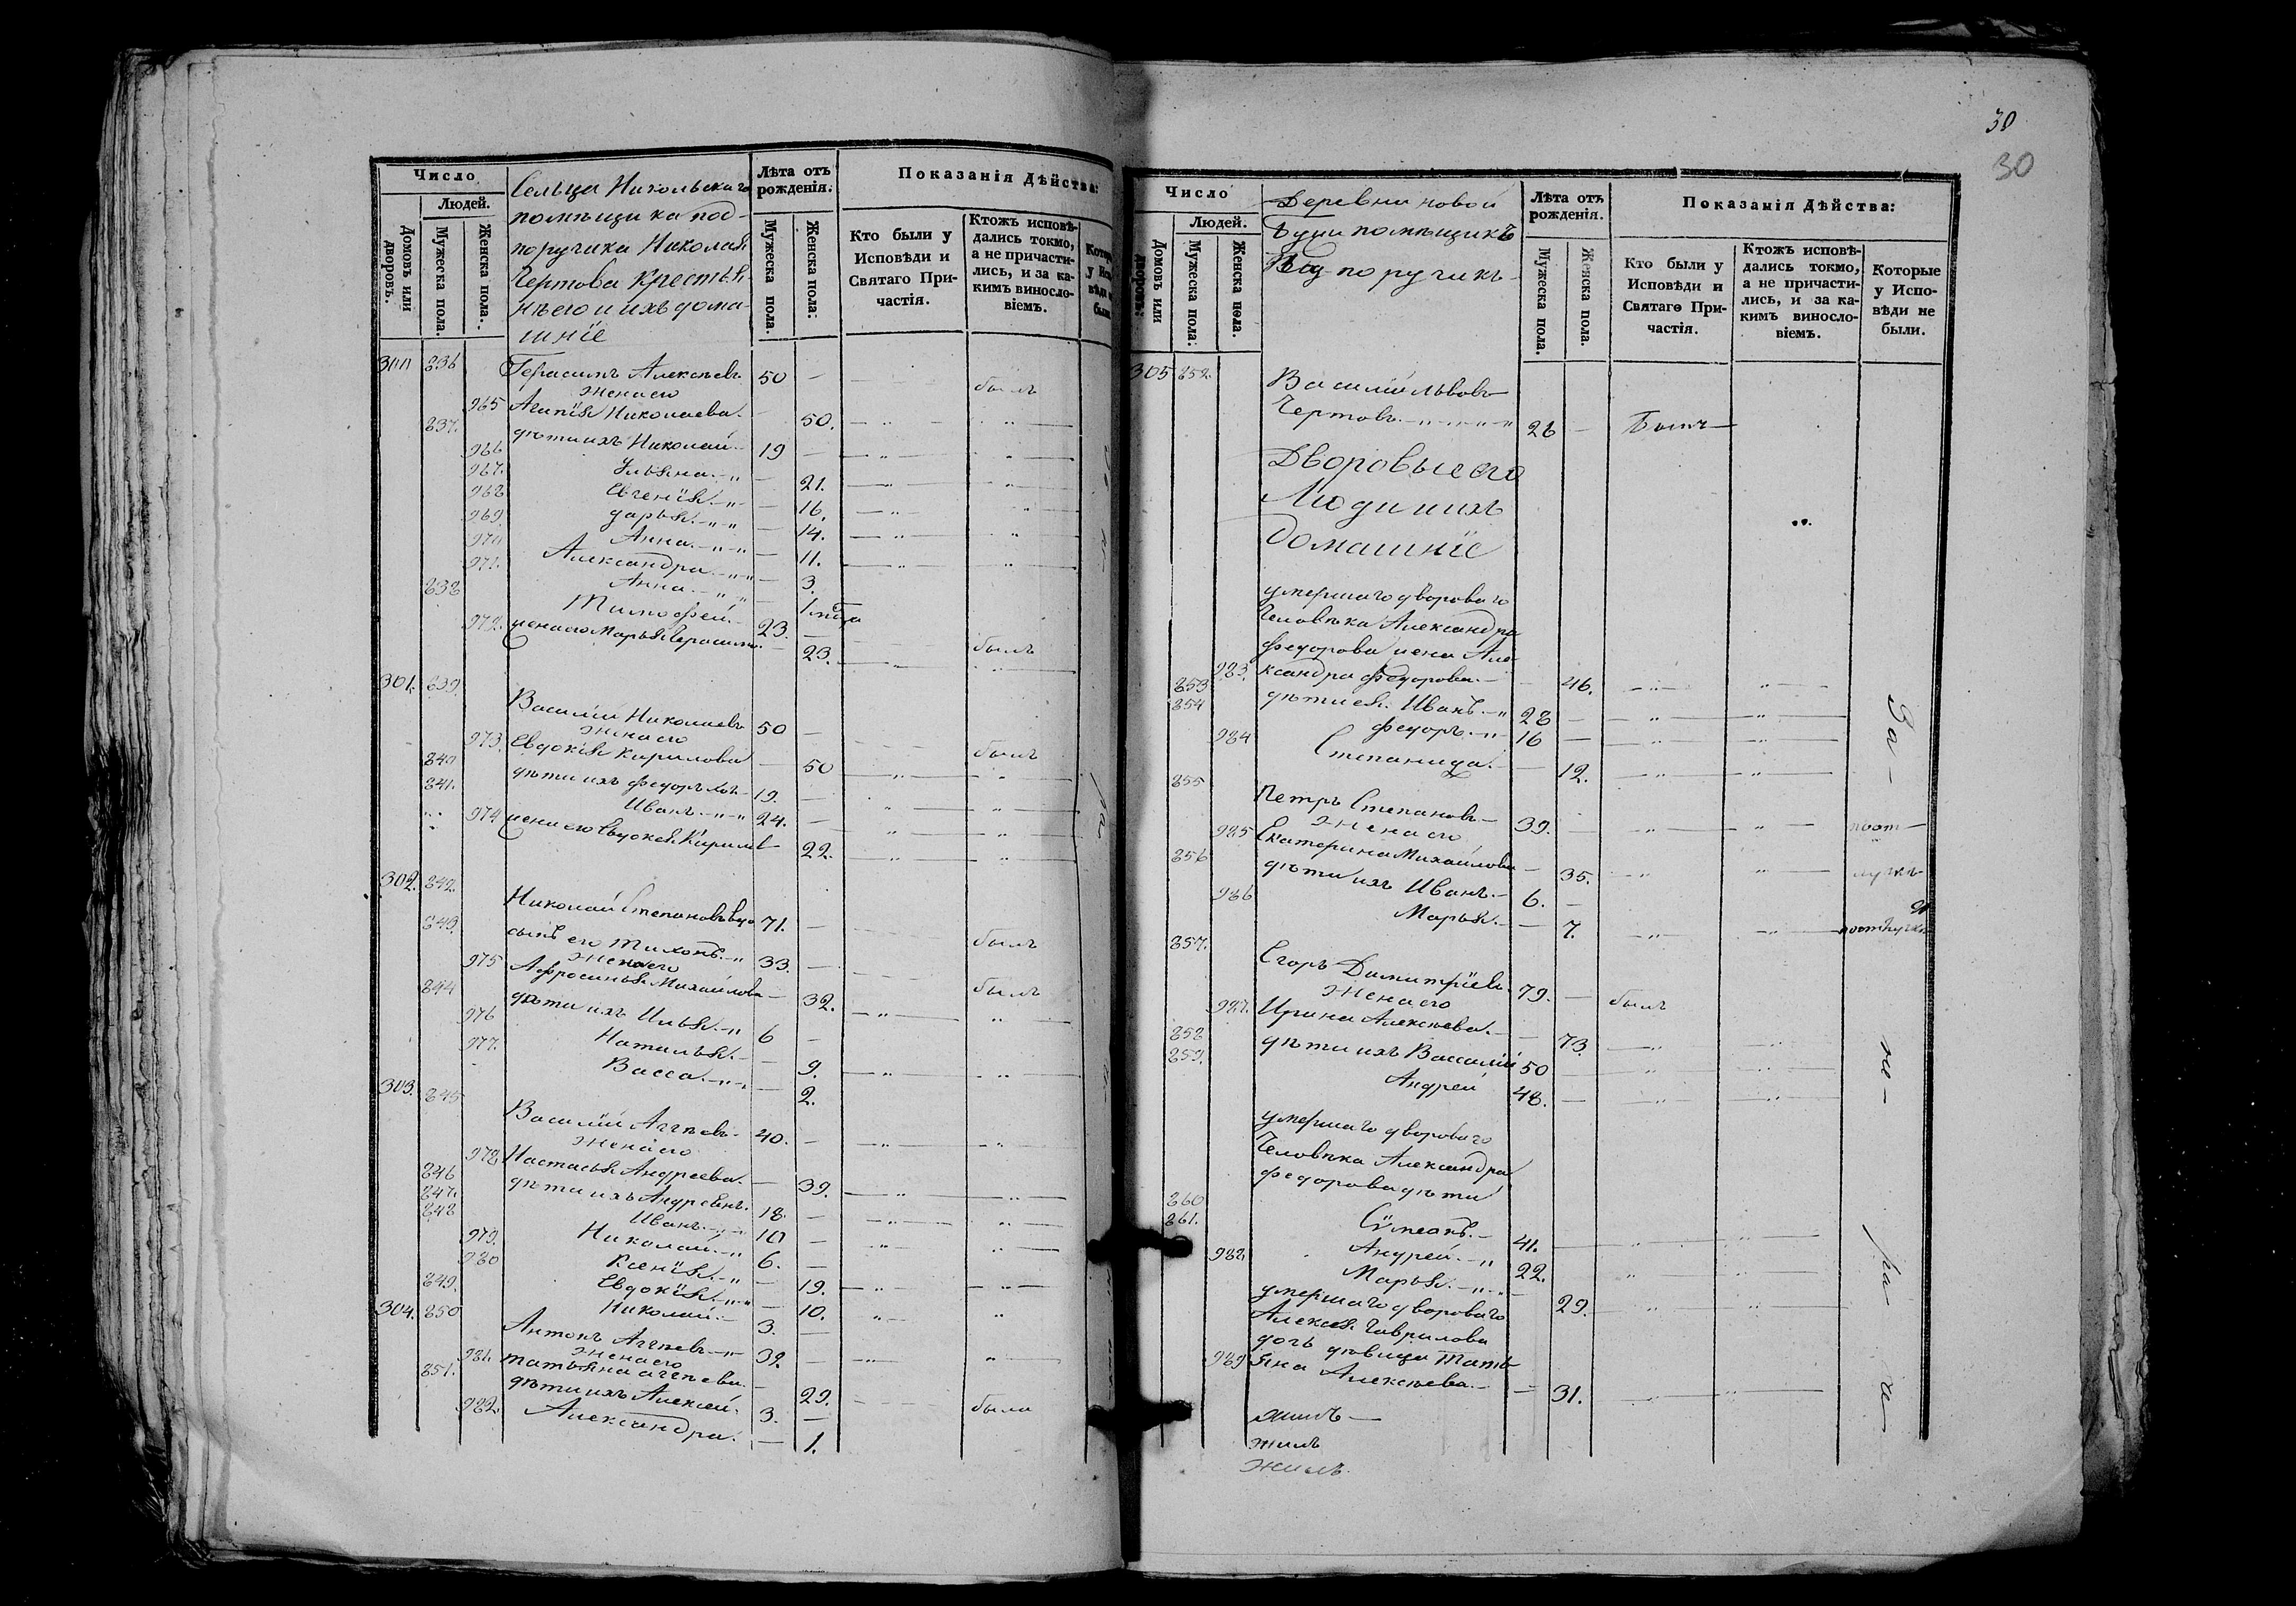 Число
Людей.
Домовъ или дворовъ.
Мужеска пола.
Женска пола.
Сельца Никольскаго
помѣщика под-
поручика Николая
Чертова крестья-
нѣ его и ихъ дома-
шніе
Лѣта отъ рожденія:
Мужеска пола.
Женска пола:
Показанія Дѣйства:
Кто были у Исповѣди и Святаго При-частія.
Ктожъ исповѣ-дались токмо, а не причасти-лись, и за ка-кимъ винослo-віемъ.
300 836 Герасимъ Алексѣевъ 50 — былъ
жена его
965 Агапія Николаева. — 50.
837. дѣти ихъ Николай — 19 —
966 Ульяна. — 21.
967. Евгенія. — 16.
968 дарья. — 14.
969. Анна. — 11.
970 Александра — 3.
971. Анна. — 1. года
838 Тимофей. — 23. — былъ
972. жена его Марья Герасимо. — 23.
301. 839. Василій Николаевъ 50 — былъ
жена его
973. Евдокія Кирилова — 50
840 дѣти ихъ федоръ 19. —
841. Иванъ. — 24. —
974 жена его Евдокея Кирилов 22.
302. 842. Николай Степановъ вдо 71. — былъ
843. сынъ его Тихонъ. — 33. — былъ
жена его
975 Афросинья Михайлова — 32.
844 дѣти ихъ Илья. — 6 —
976 Наталья. — 9.
977. Васса. — 2.
303. 845 Василій Аггѣевъ. 40. —
жена его
978 Настасья Андреева. — 39.
846 дѣти ихъ Андреянъ. 18. —
847. Иванъ. — 10 —
848 Николай. — 6. —
979. Ксенія. — 19.
980 Евдокія. — 10.
849. Николай. — 3. —
304. 850 Антонъ Аггѣевъ — 32 —
жена его
981. татьяна аггѣева. — 29. были
851. дѣти ихъ Алексей. 3. —
982. Александра. — 1.
30
30
Число
Людей.
Домовъ или дворовъ:
Мужеска пола:
Женска пола.
Деревни новой
помѣщикъ
Подпоручикъ —
Лѣта отъ рожденія.
Мужеска пола.
Женска пола.
Показанія Дѣйства:
Кто были у Исповѣди и Святаго При-частія.
Ктожъ исповѣ-дались токмо, а не причасти-лись, и за ка-кимъ винослo-віемъ.
Которые у Испо-вѣди не были.
305 852. Василій львовъ
Чертовъ. — 26 — Былъ —
Дворовые его
Люди и ихъ
домашніе
умершаго двороваго
Человѣка Александра
федорова жена Але-
983. ксандра федорова. — 46.
853 дѣти ея Иванъ. — 28 —
854 федоръ. — 16 —
984 Степанида. — 12.
855 Петръ Степановъ — 39. —
жена его
985 Екатерина Михайлова — 35.
856 дѣти ихъ Иванъ. — 6. —
986 Марья. — 7.
857. Егоръ Димитріевъ 79. — былъ
жена его
987. Ирина Алексѣева. — 73.
858 дѣти ихъ Вассилій 50 —
859. Андрей 48. —
умершаго двороваго
Человѣка Александра
федорова дѣти
860 Сѵмеонъ. — 41.
861. Андрей. — 22.
988 Марья. — 29.
умершаго двороваго
Алексея Гаврилова
дочь дѣвица Тать-
989 яна Алексѣева. — 31.
жилъ
жилъ